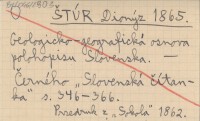 ŠTÚR Dionýz 1865.
Geologicko-geografická osnova
polohopisu Slovenska. —
Černého „Slovenská čítan-
ka" s. 346-366.
Predn. z „Sokola" 1862.